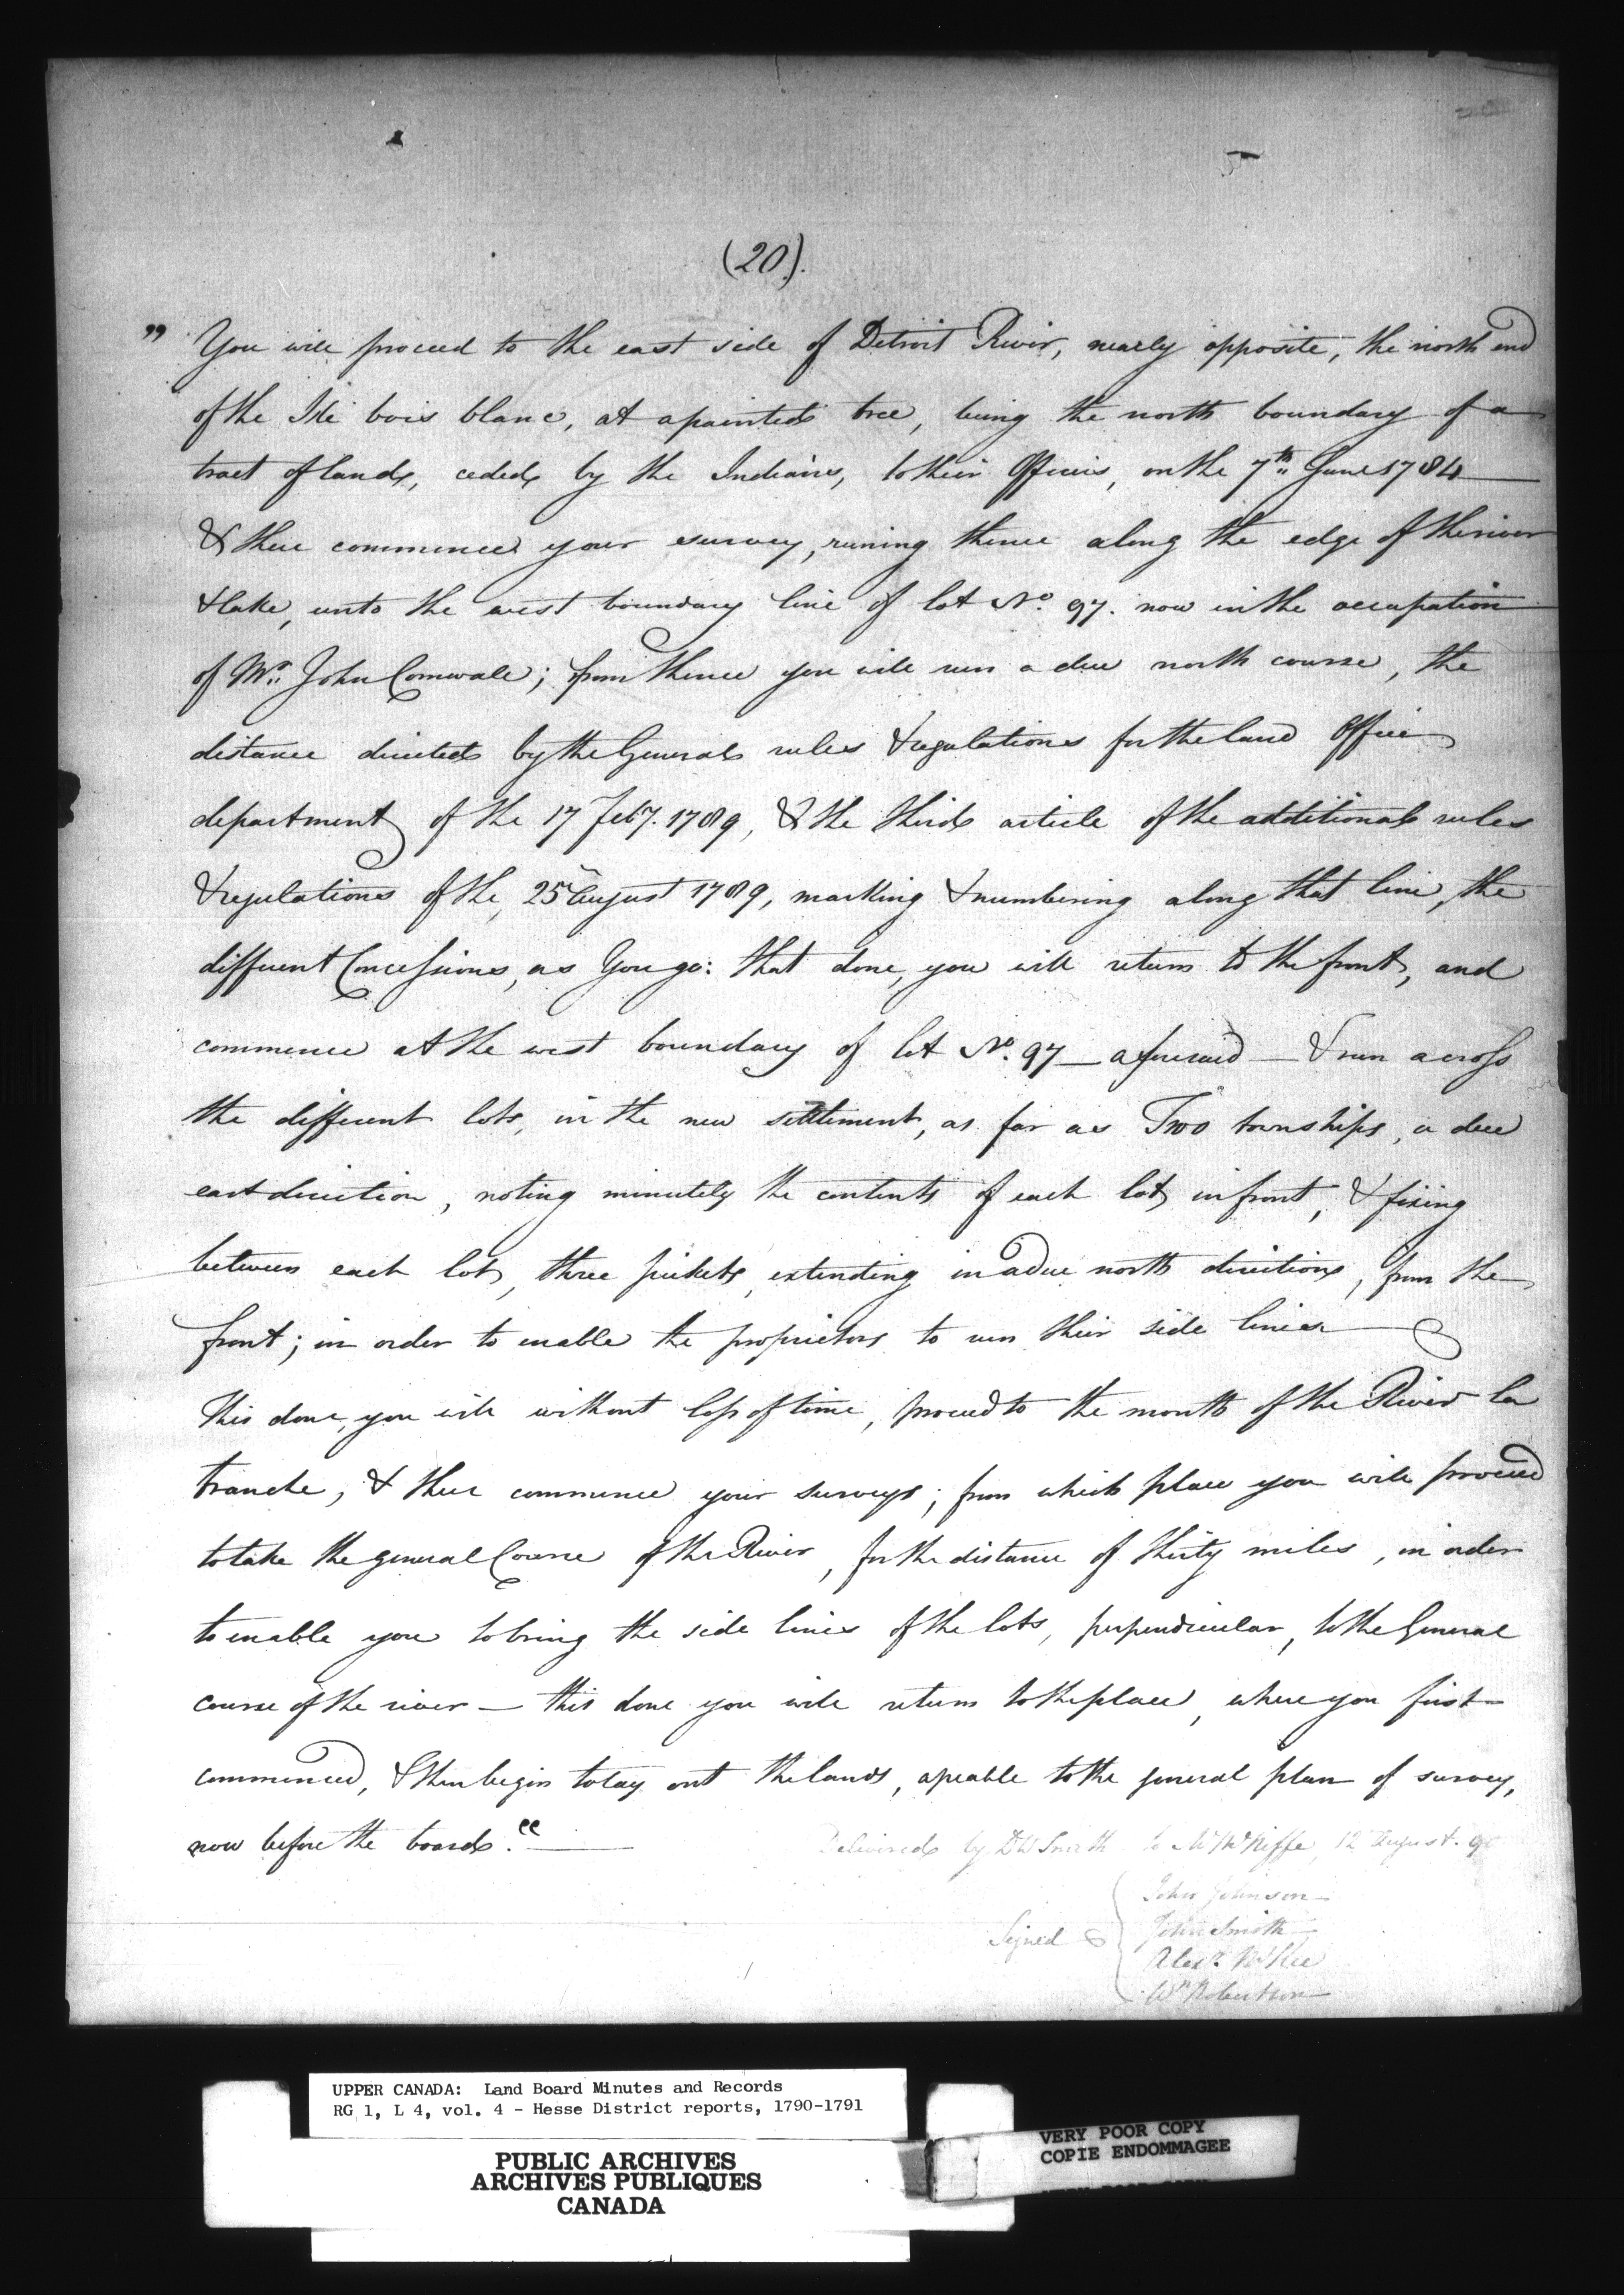 (20).
" You will proceed to the east side of Detroit River, nearly opposite, the north end
of the Isle bois blanc, at a painted tree, being the north boundary of a
tract of land, ceded by the Indians, to their Officers, on the 7th June 1784
& there commence your survey, runing thence along the edge of the river
& lake, unto the west boundary line of lot No. 97. now in the occupation
of Mr. John Cornwall; from thence you will run a due north course, the
distance directed by the General rules & regulations for the land Office
department of the 17 Feby. 1789, & the third article of the additional rules
& regulations of the, 25 August 1789, marking & numbering along that line, the
different Concessions, as You go: that done, you will return to the front, and
commence at the west boundary of lot No. 97 – aforesaid – & run across
the different lots, in the new settlement, as far as Two townships, a due
east direction, noting minutely the contents of each lot, in front, & fixing
between each lot, three pickets, extending in a due north direction, from the
front; in order to enable the proprietors to run their side lines
This done, you will without loss of time, proceed to the mouth of the River la
tranche, & there commence your surveys; from which place you will proceed
to take the general Course of the River, for the distance of thirty miles, in order
to enable you to bring the side lines of the lots, perpendicular, to the General
course of the river – this done you will return to the place, where you first
commenced, & then begin to lay out the lands, agreable to the general plan of survey,
now before the board."
Delivered by D W Smith to Mr McNiffe, 12 August. 90
John Johnson
Signed John Smith
Alexr. McKee
Wm Robertson
UPPER CANADA: Land Board Minutes and Records
RG 1, L 4, vol. 4 - Hesse District reports, 1790-1791
PUBLIC ARCHIVES
ARCHIVES PUBLIQUES
CANADA
VERY POOR COPY
COPIE ENDOMMAGEE